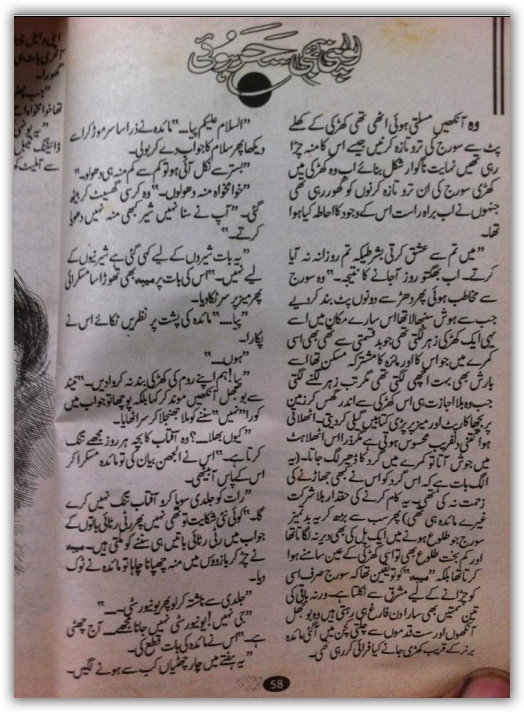 وہ آنکھیں مسلتی ہوئی اٹھی تھی کھڑکی کے کھلے
پٹ سے سورج کی تر و تازہ کرنیں جیسے اس کا منہ چڑا
رہی تھیں نہایت ناگوار شکل بنائے اب وہ کھڑکی میں
کھڑی سورج کی ان تر و تازہ کرنوں کو گھور رہی تھی
جنہوں نے اب براہ راست اس کے وجود کا احاطہ کیا ہوا
تھا۔
"میں تم سے عشق کرتی بشرطیکہ تم روزانہ نہ آیا
کرتے۔ اب بھگتو روز آجانے کا نتیجہ۔" وہ سورج
سے مخاطب ہوئی پھر دھڑ سے دونوں پٹ بند کر دیے
جب سے ہوش سنبھالا تھا اس سارے مکان میں اسے
یہی ایک کھڑکی زہر لگتی تھی جو بدقسمتی سے تھی بھی اسی
کمرے میں جو اس کا اور مائدہ کا مشترکہ مسکن تھا اسے
بارش بھی بہت اچھی لگتی تھی مگر تب زہر لگنے لگتی
جب وہ بلا اجازت ہی اس کھڑکی سے اندر گھس کر زمین
پر بچھا کارپٹ اور میز پر پڑی کتابیں گیلی کر دیتی۔ اٹھلاتی
ہوا کتنی دلفریب محسوس ہوتی ہے مگر ذرا اس اٹھلاہٹ
میں جوش آتا تو کمرے میں گرد کا ڈھیر لگ جاتا۔ (یہ
الگ بات ہے کہ اس گرد کو اس نے کبھی جھاڑنے کی
زحمت نہ کی تھی۔ یہ کام کرنے کی حقدار بلا شرکت
غیرے مائدہ ہی تھی) پھر سب سے بڑھ کر یہ بدتمیز
سورج جو طلوع ہونے میں ایک پل کی بھی دیر نہ لگاتا تھا
اور کم بخت طلوع بھی تو اسی کھڑکی کے عین سامنے ہوا
کرتا تھا بلکہ کو تو یقین تھا کہ سورج صرف اسی
کو چڑانے کے لیے مشرق سے نکلتا ہے۔ ورنہ باقی کی
تین سمتیں بھی سارا دن فارغ ہی رہتی ہیں وہ بوجھل
آنکھوں اور ست قدموں سے چلتی کچن میں آگئی مائدہ
برنر کے قریب کھڑی جانے کیا فرائی کر رہی تھی۔
"السلام علیکم پیا۔۔۔" مائدہ نے ذرا سا سر موڑ کر اسے
دیکھا پھر سلام کا جواب دے کر بولی۔
"بستر سے نکل آئی ہو تو کم سے کم منہ ہی دھو لو۔"
"خوامخواہ منہ دھو لوں۔" وہ کرسی گھسیٹ کر بیٹھ
گئی۔ "آپ نے سنا نہیں شیر کبھی منہ نہیں دھویا
کرتے۔"
"یہ بات شیروں کے لیے کہی گئی ہے شیرنیوں کے
لیے نہیں۔" اس کی بات پر بھی تھوڑا سا مسکرائی
پھر میز پر سر ٹکا دیا۔
"پیا۔۔۔" مائدہ کی پشت پر نظریں ٹکائے اس نے
پکارا۔
"ہوں۔۔۔"
"پیا! ہم اپنے روم کی کھڑکی بند نہ کروا دیں۔" نیند
سے بوجھل آنکھیں موند کر کہا بلکہ پوچھا تو جواب میں
کورا "نہیں" سننے کو ملا جھنجلا کر سر اٹھایا۔
"کیوں بھلا۔۔۔؟ وہ آفتاب کا بچہ ہر روز مجھے تنگ
کرتا ہے۔" اس نے الجھن بیان کی تو مائدہ مسکرا کر
اس کے پاس آ بیٹھی۔
"رات کو جلدی سویا کرو آفتاب تنگ نہیں کرے
گا۔" کوئی نئی شکایت تو تھی نہیں پھر رٹی رٹائی باتوں کے
جواب میں رٹی رٹائی باتیں ہی سننے کو ملتی ہیں۔
نے چڑ کر بازوؤں میں منہ چھپانا چاہا تو مائدہ نے ٹوک
دیا۔
"جلدی سے ناشتہ کر لو پھر یونیورسٹی۔۔۔"
"جی نہیں! یونیورسٹی نہیں جانا مجھے۔۔۔ آج چھٹی
ہے۔" اس نے مائدہ کی بات قطع کی۔
"یہ ہفتے میں چار چھٹیاں کب سے ہونے لگیں۔
58